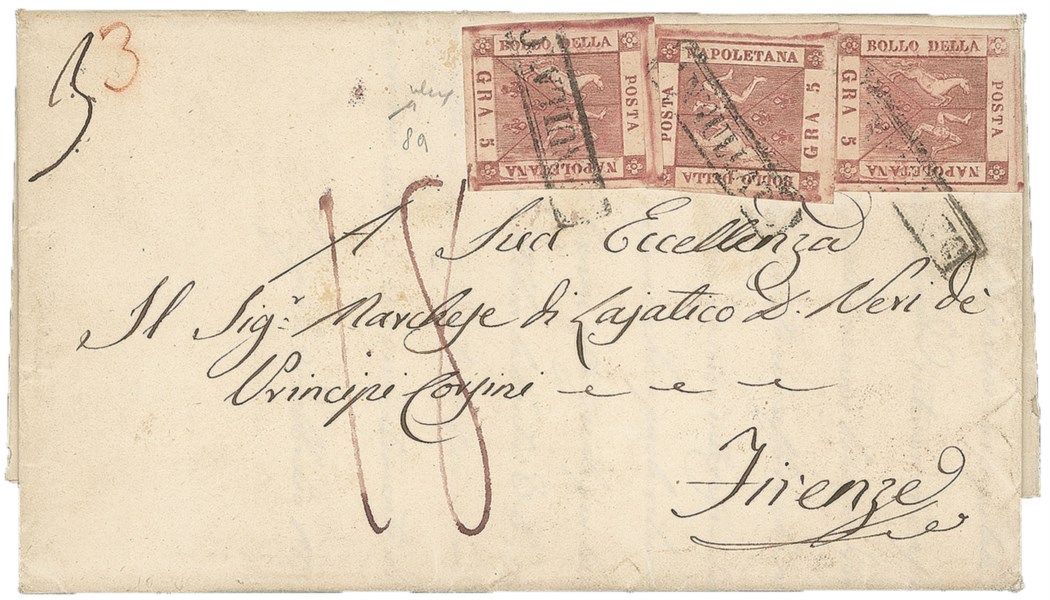 3 3
89
BOLLO DELLA
POSTA
NAPOLETANA
GRA 5
ANNULLATO
BOLLO DELLA
POSTA
NAPOLETANA
GRA 5
ANNULLATO
BOLLO DELLA
POSTA
NAPOLETANA
GRA 5
18
A Sua Eccellenza
Il Sig.r Marchese di Lajatico D. Neri de'
Principi Corsini
Firenze